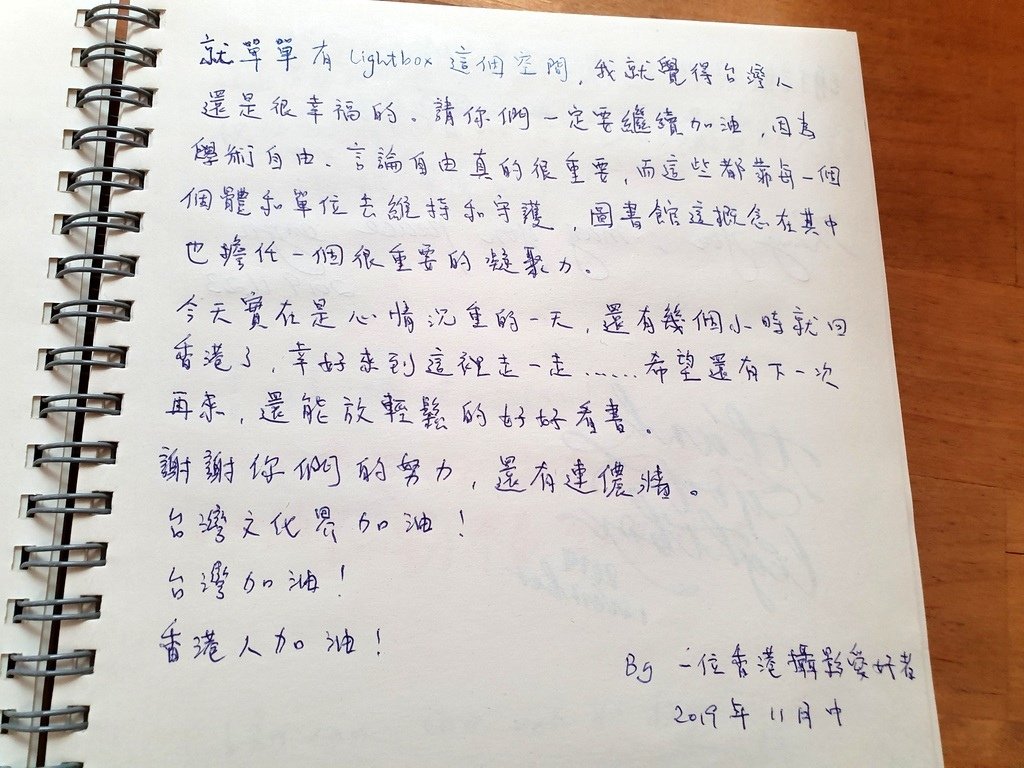 就單單有 Lightbox 這個空間，我就覺得台灣人
還是很幸福的。請你們一定要繼續加油，因為
學術自由、言論自由真的很重要，而這些都靠每一個
個體和單位去維持和守護，圖書館這概念在其中
也擔任一個很重要的凝聚力。
今天實在是心情沉重的一天，還有幾個小時就回
香港了，幸好來到這裡走一走……希望還有下一次
再來，還能放輕鬆的好好看書。
謝謝你們的努力，還有連儂牆。
台灣文化界加油！
台灣加油！
香港人加油！
By 一位香港攝影愛好者
2019年11月中